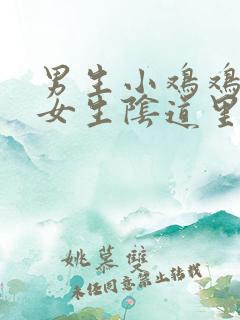 男生小鸡鸡
女生陰道里
姚慕雙
未经同意禁止转载